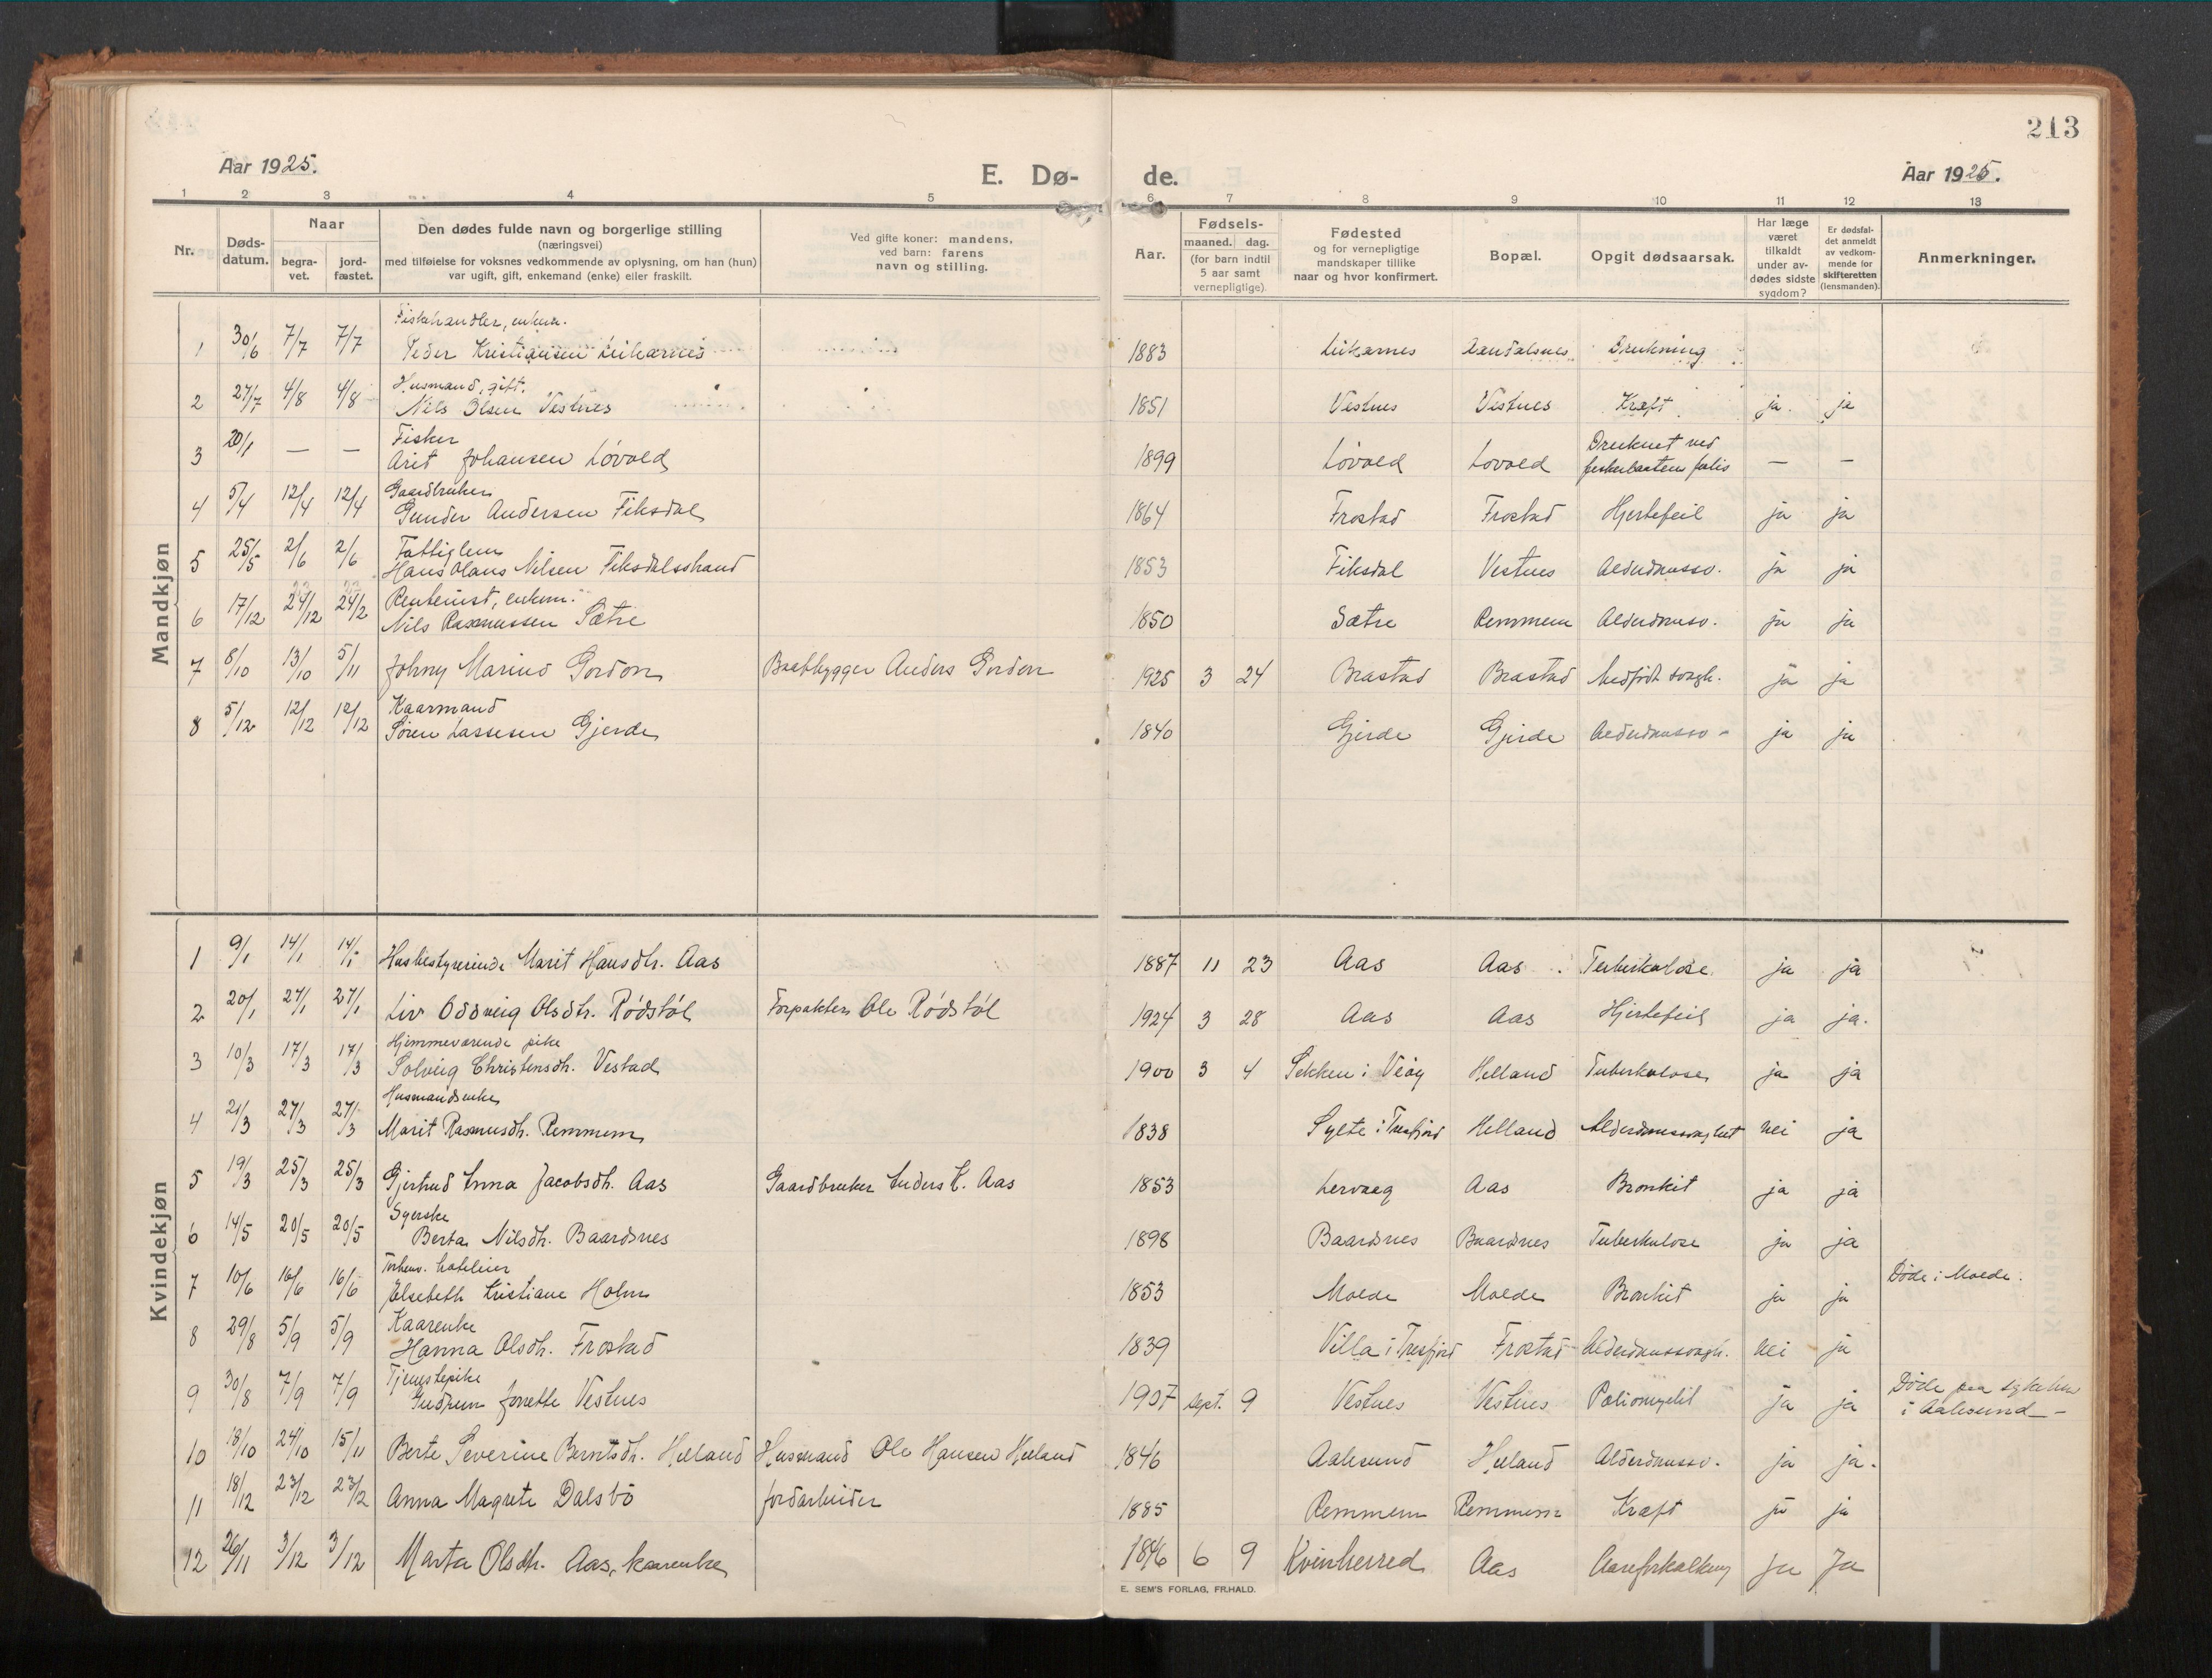 213
Aar 1925.
E. Dø-
de.
Aar 1925.
1 2 3 4 5 6 7 8 9 10 11 12 13
Nr.
Døds-
datum.
Naar
begra-
vet.
jord-
fæstet.
Den dødes fulde navn og borgerlige stilling
(næringsvei)
med tilføielse for voksnes vedkommende av oplysning, om han (hun)
var ugift, gift, enkemand (enke) eller fraskilt.
Ved gifte koner: mandens,
ved barn: farens
navn og stilling.
Aar.
Fødsels-
maaned. dag.
(for barn indtil
5 aar samt
vernepligtige)
Fødested
og for vernepligtige
mandskaper tillike
naar og hvor konfirmert.
Bopæl.
Opgit dødsaarsak.
Har læge
været
tilkaldt
under av-
dødes sidste
sygdom?
Er dødsfal-
det anmeldt
av vedkom-
mende for
skifteretten
(lensmanden).
Anmerkninger.
Mandkjøn
Fiskehandler, enkem.
1 30/6 7/7 7/7 Peder Kristiansen Leikarnes 1883 Leikarnes Aandalsnes Drukning
Husmand, gift.
2 27/7 4/8 4/8 Nils Olsen Vestnes 1851 Vestnes Vestnes Kræft ja. ja
Fisker Druknet ved
3 20/1 — — Arit Johansen Løvold 1899 Løvold Lovold forlis — —
Gaardbruker
4 5/4 12/4 12/4 Gunder Andersen Fiksdal 1864 Frostad Frostad Hjertefeil ja ja
Fattiglem
5 25/5 2/6 2/6 Hans Olaus Nilsen Fiksdalsstrand 1853 Fiksdal Vestnes Alderdomssv. ja ja
Rentenist, enkem.
6 17/12 24/12 24/12 Nils Rasmussen Sætre 1850 Sætre Remmem Alderdomssv. ja ja
7 8/10 13/10 5/11 Johny Marino Gordon Baatbygger Anders Gordon 1925 3 24 Brastad Brastad Medfødt svagh. ja ja
Kaarmand
8 5/12 12/12 12/12 Søren Lassesen Gjerde 1840 Gjerde Gjerde Alderdomssv - ja ja
Kvindekjøn
1 9/1 14/1 14/1 Husbestyrerinde Marit Hansdtr. Aas 1887 11 23 Aas Aas Tuberkulose. ja ja
2 20/1 27/1 27/1 Liv Oddveig Olsdtr. Rødstøl Forpakter Ole Rødstøl 1924 3 28 Aas Aas Hjertefeil ja ja.
Hjemmeværende pike
3 10/3 17/3 17/3 Solveig Christensdtr. Vestad 1900 3 4 Sekken i Veøy Helland Tuberkulose ja ja
Husmandsenke
4 21/3 27/3 27/3 Marit Rasmusdtr. Remmem 1838 Sylte i Tresfjord Helland Alderdomssvaghet nei ja
5 19/3 25/3 25/3 Gjertrud Anna Jacobsdtr. Aas Gaardbruker Anders K. Aas 1853 Lervaag Aas Bronkit ja ja
Syerske
6 14/5 20/5 20/5 Berta Nilsdtr. Baardsnes 1898 Baardsnes Baardsnes Tuberkulose ja ja
7 10/6 16/6 16/6 Elsebeth Kristiane Holm 1853 Molde Molde Bronkit ja ja Døde i Molde.
Kaarenke
8 29/8 5/9 5/9 Hanna Olsdtr. Frostad 1839 Villa i Tresfjord Frostad Alderdomssvagh. nei ja
Tjenestepike
9 30/8 7/9 7/9 Gudrun Jonette Vestnes 1907 sept. 9 Vestnes Vestnes Poliomyelit ja ja Døde paa sykehus
i Aalesund -
10 18/10 24/10 15/11 Berte Severine Berntsdtr. Helland Husmand Ole Hansen Helland 1846 Aalesund Helland Alderdomssv. ja ja.
11 18/12 23/12 23/12 Anna Magrete Dalsbö Jordarbeider 1885 Remmem Remmem Kræft ja ja
12 26/11 3/12 3/12 Marta Olsdtr. Aas, kaarenke 1846 6 9 Kvinherred Aas Aareforkalkning ja Ja
E. SEM'S FORLAG, FR.HALD.